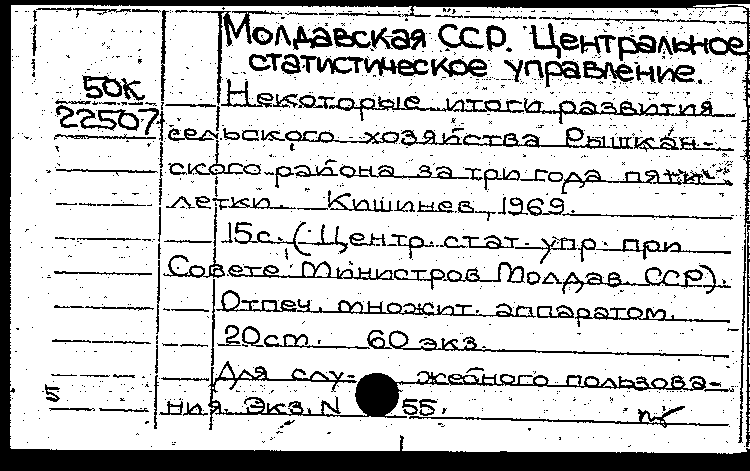 Молдавская ССР. Центральное
статистическое управление.
50К
22507
Некоторые итоги развития
сельского хозяйства Рышкан-
ского района за три года пяти-
летки. Кишинев, 1969.
15с. (Центр. стат. упр. при
Совете Министров Молдав. ССР).
Отпеч. множит. аппаратом.
20см. 60 экз.
Для слу- жебного пользова-
ния. Экз. N 55.